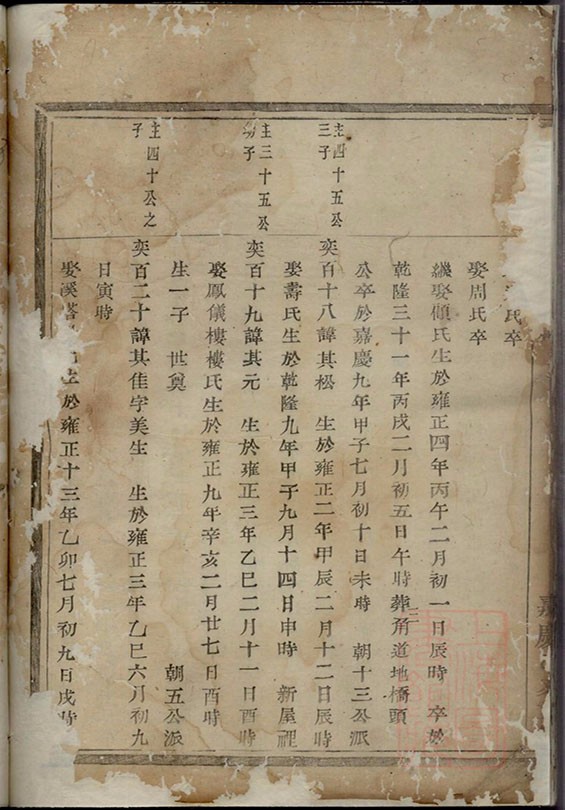 氏卒
娶周氏卒
繼娶傾氏生於雍正四年丙午二月初一日辰時 卒於
乾隆三十一年丙戌二月初五日午時葬角道地橋頭
公卒於嘉慶九年甲子七月初十日未時 朝十三公派
主四十五公
三子
奕百十八諱其松 生於雍正二年甲辰二月十二日辰時
娶壽氏生於乾隆九年甲子九月十四日申時 新屋裡
主三十五公
子
奕百十九諱其元 生於雍正三年乙巳二月十一日酉時
娶鳳儀樓樓氏生於雍正九年辛亥二月廿七日酉時
生一子 世奠 朝五公派
主四十公之
子
奕百二十諱其佳字美生 生於雍正三年乙巳六月初九
日寅時
娶溪 生於雍正十三年乙卯七月初九日戌時